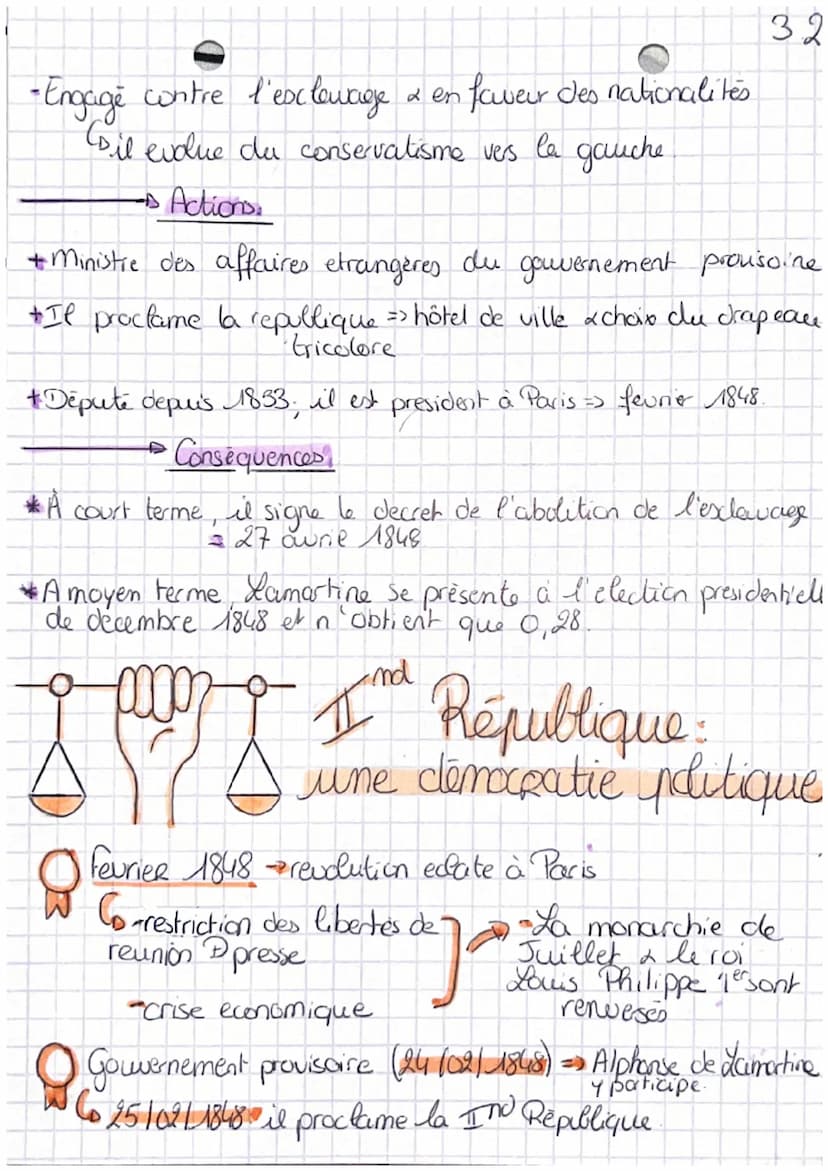 32
- Engagé contre l'esclavage & en faveur des nationalités
↳ il evolue du conservatisme vers la gauche.
→ Actions:
+ Ministre des affaires etrangères du gouvernement provisoire
+ Il proclame la republlique => hôtel de ville & choix du drapeau
tricolore
+ Député depuis 1833; il est president à Paris => fevrier 1848.
→ Conséquences:
* À court terme, il signe le decret de l'abolition de l'esclavage
= 27 avril 1848
* A moyen terme, Lamartine se présente à l'election presidentiell
de decembre 1848 et n'obtient que 0,28.
IInd République:
une démocratie politique
fevrier 1848 → revolution eclate à Paris
↳ - restriction des libertés de
reunion D presse
- crise economique
- La monarchie de
Juillet & le roi
Louis Philippe 1er sont
renversés
Gouvernement provisoire (24/02/1848) => Alphonse de Lamartine
y participe.
↳ 25/02/1848 il proclame la IInd République.